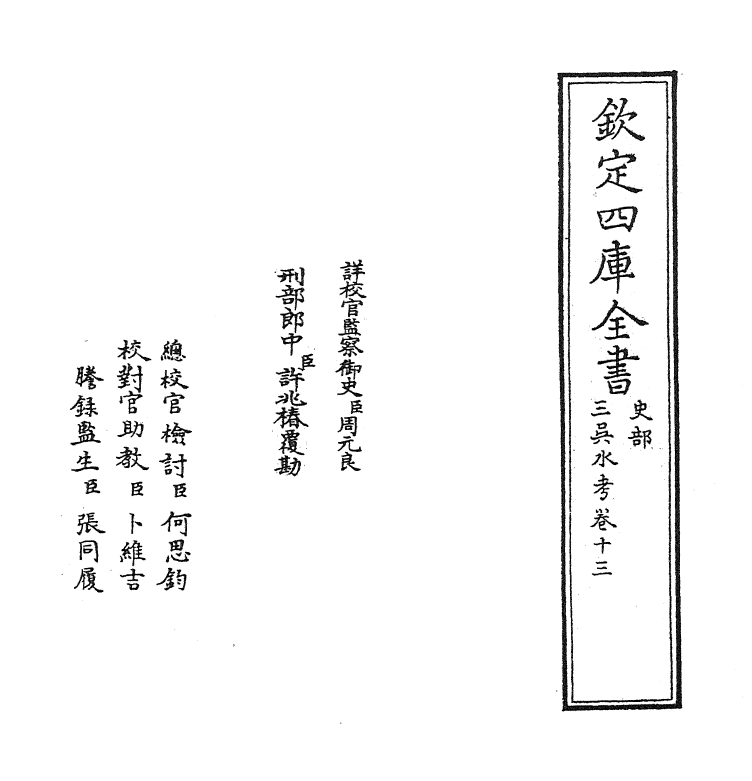 欽定四庫全書
史部
三吳水考卷十三
詳校官監察御史臣周元良
刑部郎中臣許兆椿覆勘
總校官檢討臣何思鈞
校對官助教臣卜維吉
謄錄監生臣張同履